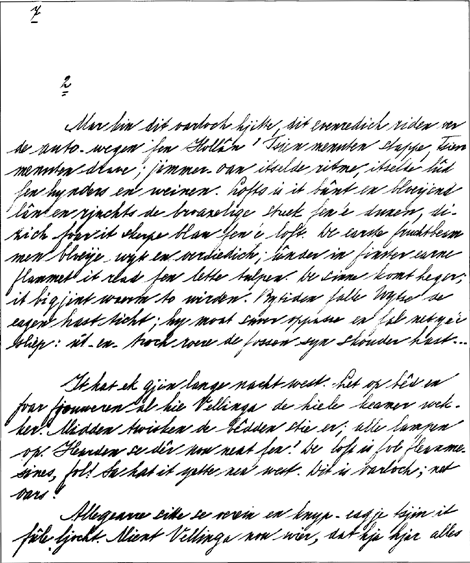 7
2
Mar hin dit oarloch hjitte, dit evenredich riden oer
de auto-wegen fen Hollân? Tsjin menuten stappe, tsien
menuten drave; jimmer oan itselde ritme, itselde lûd
fen hynders en weinen. Lofts is it bânt en bloeijend
lân en rjuchts de broazelige streek fen 'e dunen,
foar it blau fen 'e loft. De earste fruchtbeam-
men bloeije wyt en oerdiedich; ûnder in finster earne
flammet it read fen lette tulpen. De sinne komt heger;
it bigjint waarm to wirden. Bytiden falle se
eagen hast ticht; hy moat oppasse en fal net yn 'e
sliep: út-en-troch de foesen syn skouder hast...
It hat ek gjin lange nacht west. Let op bêd en
foar fjouweren al hie Vellinga de hiele keamer wek-
ker. Midden twisken de bêdden stie er; alle lampen
op: Hearden se dêr non neat fen? De loft is fol fleanme-
sines, fol! Sa hat it west. Dit is oarloch; net
oars!
Allegearre sitte se oerein en knyp-eagje tsjin it
fûle ljocht. Mient Vellinga non wier, dat hja hjir alles